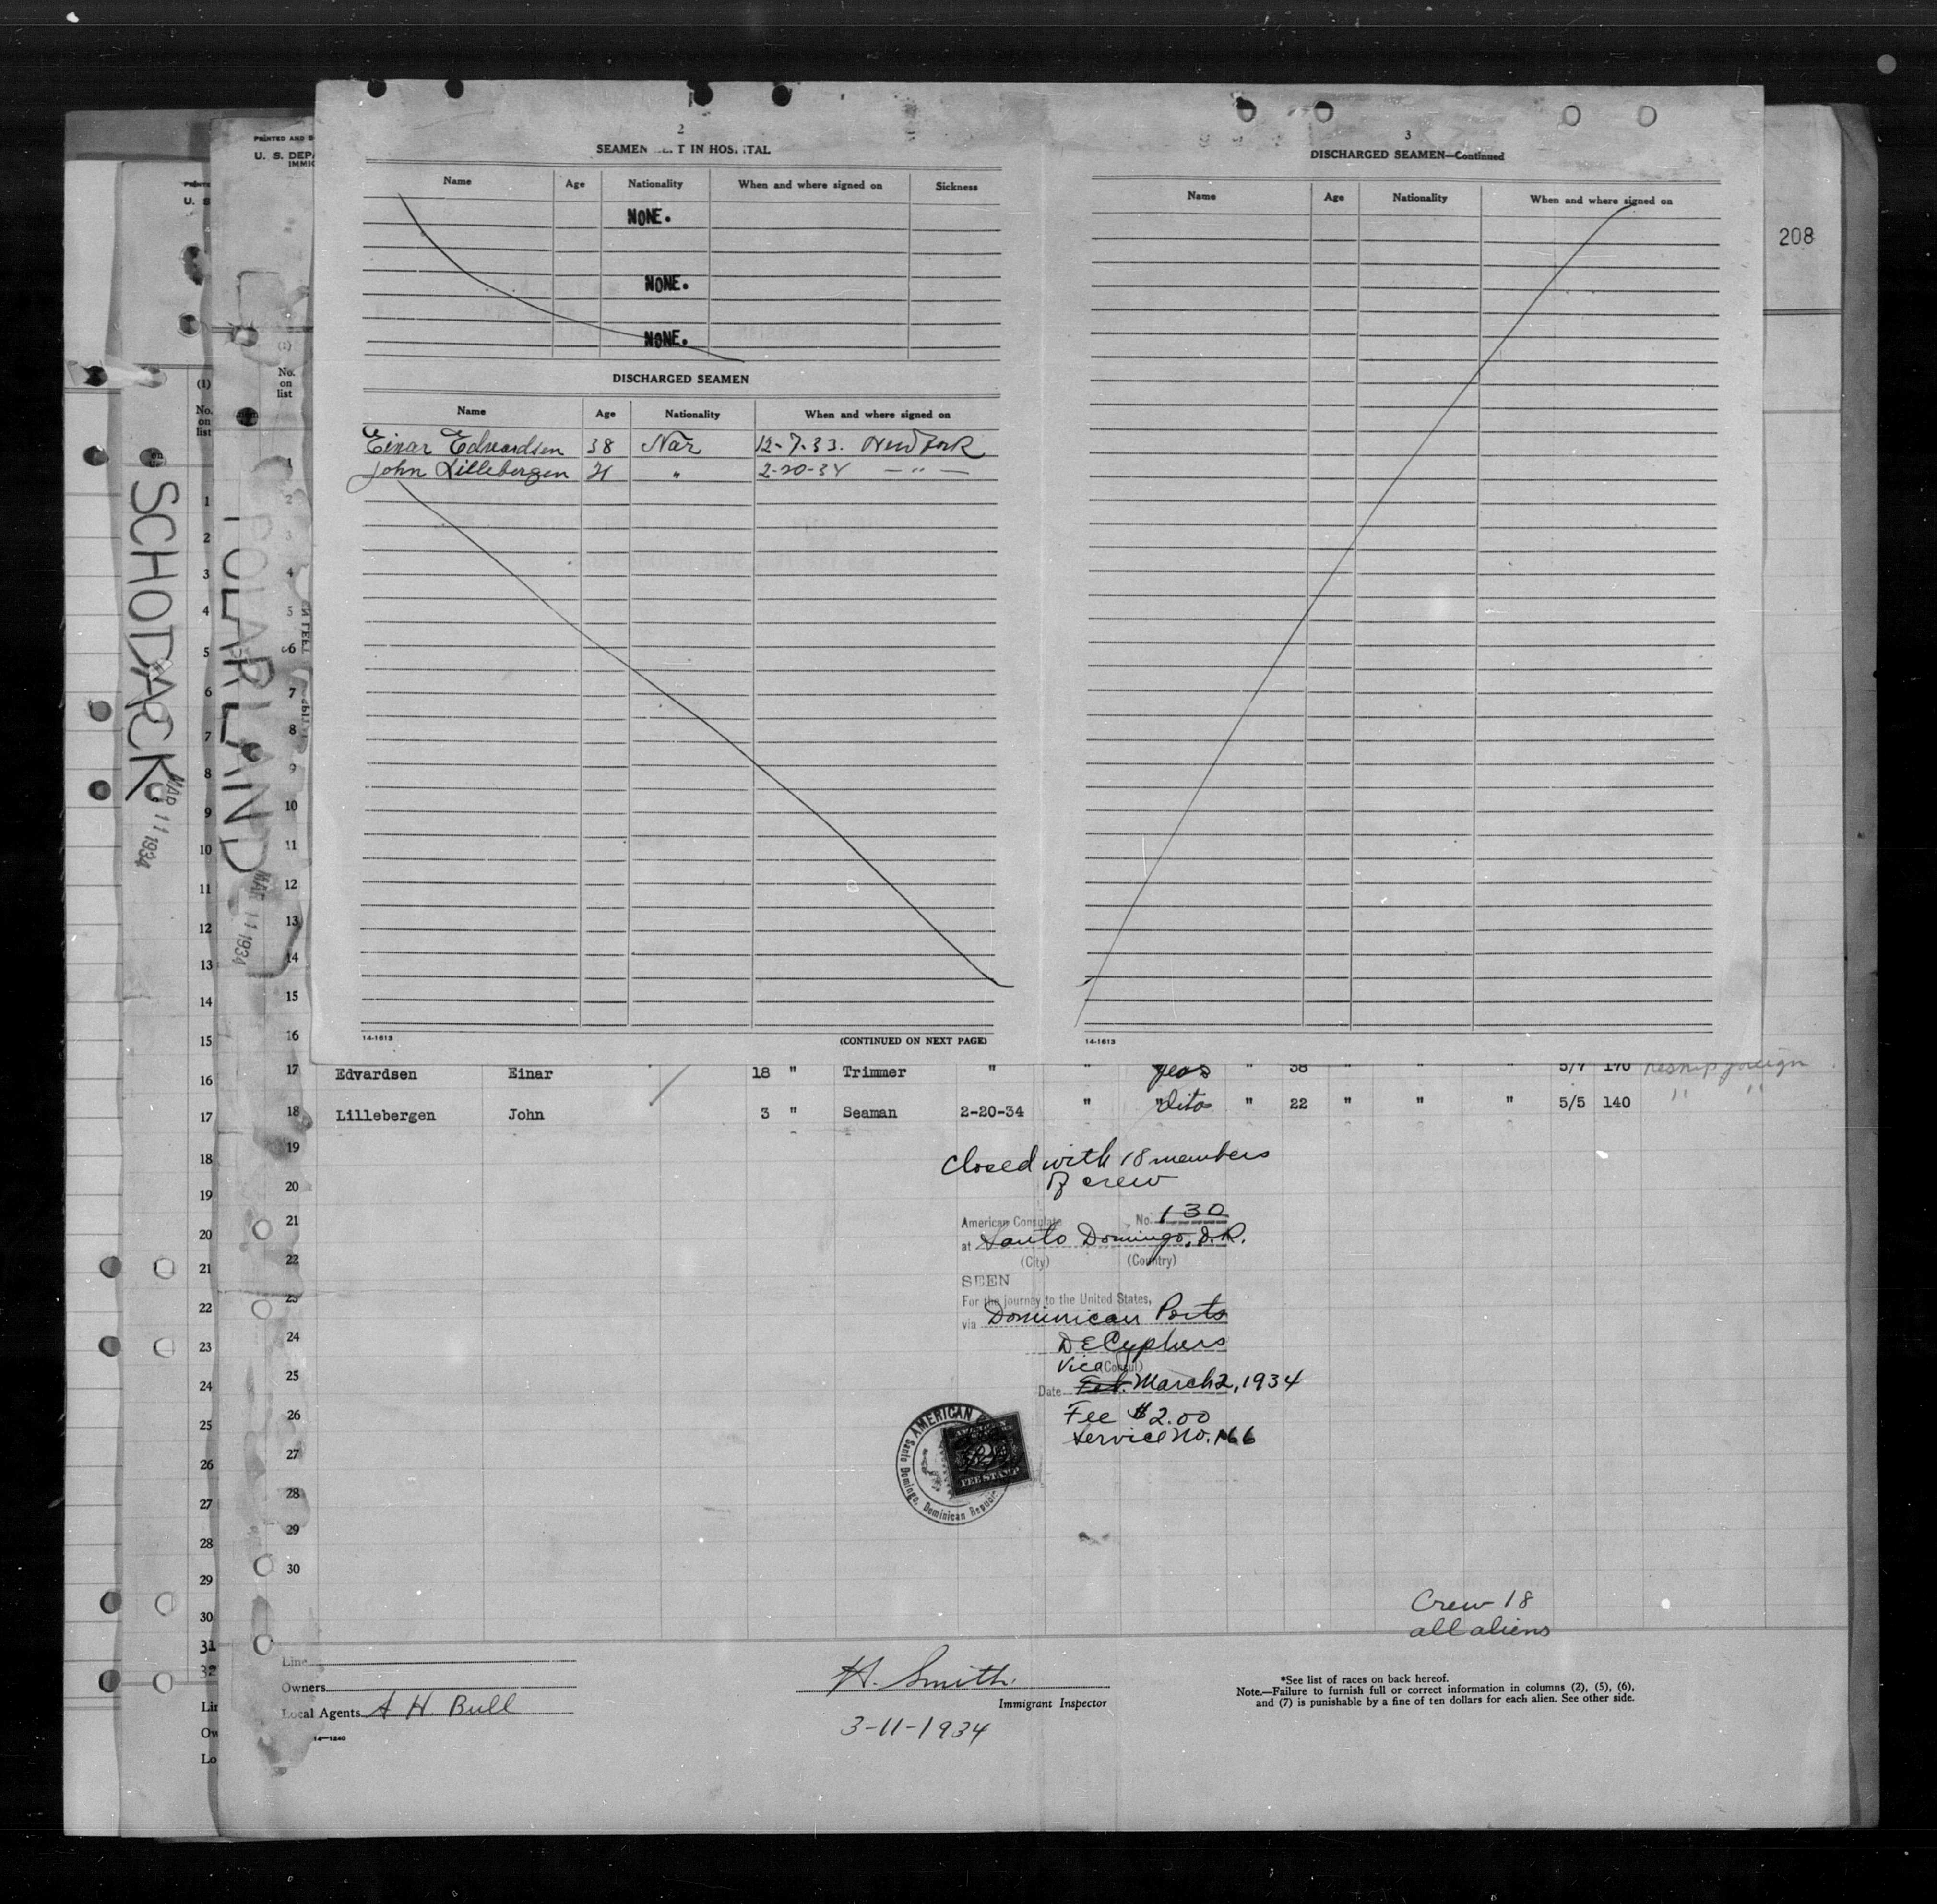 2
SEAMEN T IN HOS ITAL
Name Age Nationality When and where signed on Sickness
NONE.
NONE.
NONE.
DISCHARGED SEAMEN
Name Age Nationality When and where signed on
Einar Edvardsen 38 Nor 12-7-33. New York
John Lillebergen 21 " 2-20-34 — " —
14-1613 (CONTINUED ON NEXT PAGE)
3
DISCHARGED SEAMEN—Continued
Name Age Nationality When and where signed on
14-1613
208
PRINTED AND
U. S. DEPA
IMMIG
(1)
No.
on
list
U. S
(1)
No.
on
list
SCHODACK
MAR 11 1934
POLARLAND
MAR 11 1934
1
2
3
4
5
6
7
8
9
10
11
12
13
14
15
16
17
18
19
20
21
22
23
24
25
26
27
28
29
30
31
32
Lin
Ow
Lo
1
2
3
4
5
6
7
8
9
10
11
12
13
14
15
16
17 Edvardsen Einar 18 " Trimmer " " yeas " 38 " " " 5/7 170 Reship foreign
18 Lillebergen John 3 " Seaman 2-20-34 " " dito " 22 " " " 5/5 140 " "
19
20
21
22
23
24
25
26
27
28
29
30
Closed with 18 members
of crew
American Consulate No. 130
at Santo Domingo, D.R.
(City) (Country)
SEEN
For the journey to the United States,
via Dominican Ports
Vice (Consul)
Date Feb. March 2, 1934
Fee $2.00
Service No. 166
AMERICAN
Santo Domingo, Dominican Republic
2
FEE STAMP
Crew 18
all aliens
Line
Owners
Local Agents A H. Bull
14—1240
H. Smith.
Immigrant Inspector
3-11-1934
*See list of races on back hereof.
Note.—Failure to furnish full or correct information in columns (2), (5), (6),
and (7) is punishable by a fine of ten dollars for each alien. See other side.